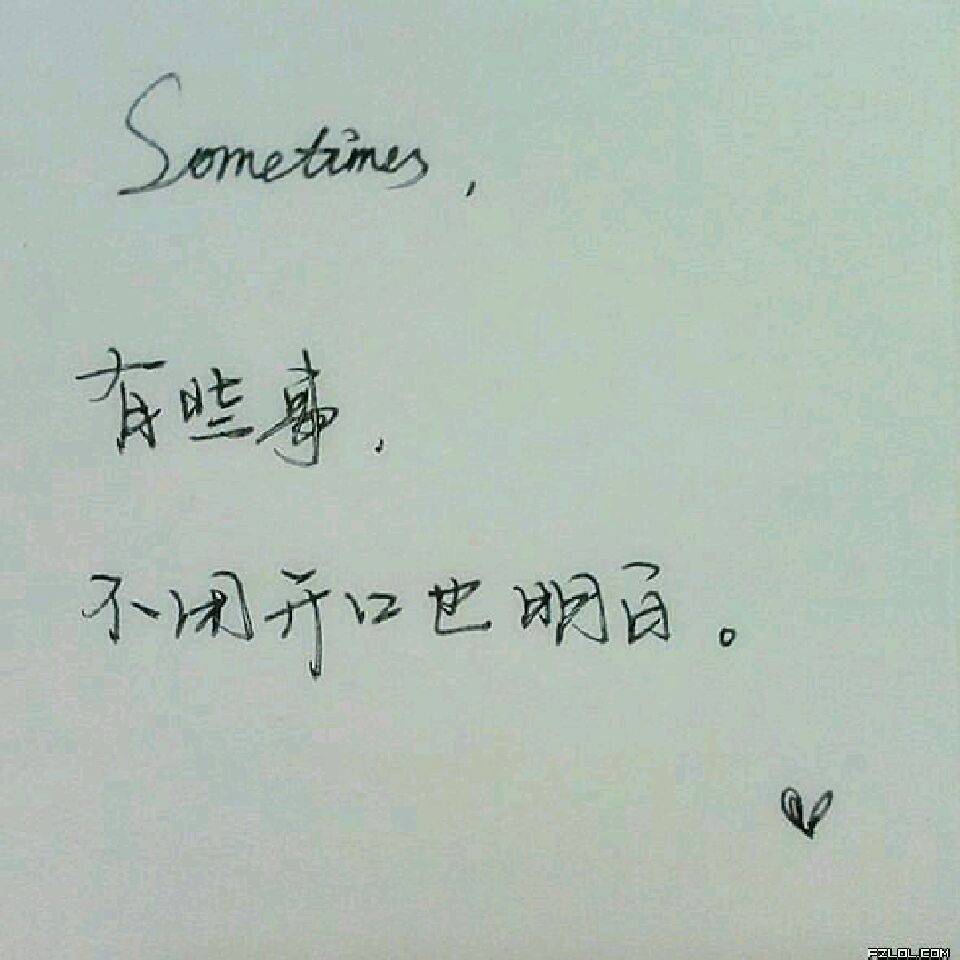 Sometimes,
有些事,
不用开口也明白。
FZLOL.COM